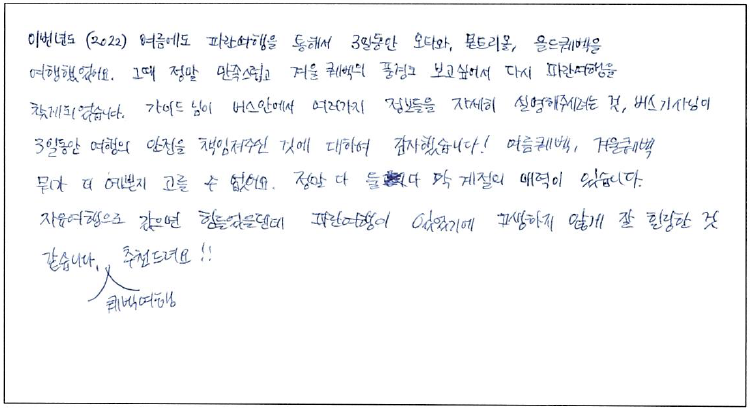 이번년도 (2022) 여름에도 파란여행을 통해서 3일동안 오타와, 몬트리올, 올드퀘벡을
여행했었어요. 그때 정말 만족스럽고 겨울 퀘벡의 풍경도 보고싶어서 다시 파란여행을
찾게되었습니다. 가이드님이 버스안에서 여러가지 정보들을 자세히 설명해주시려는 것, 버스기사님이
3일동안 여행의 안전을 책임져주신 것에 대하여 감사했습니다! 여름퀘벡, 겨울퀘벡
뭐가 더 예쁜지 고를 수 없어요. 정말 다 둘다 각 계절의 매력이 있습니다.
자유여행으로 갔으면 힘들었을텐데 파란여행이 있었기에 고생하지 않게 잘 힐링한 것
같습니다. 추천드려요!!
퀘벡여행